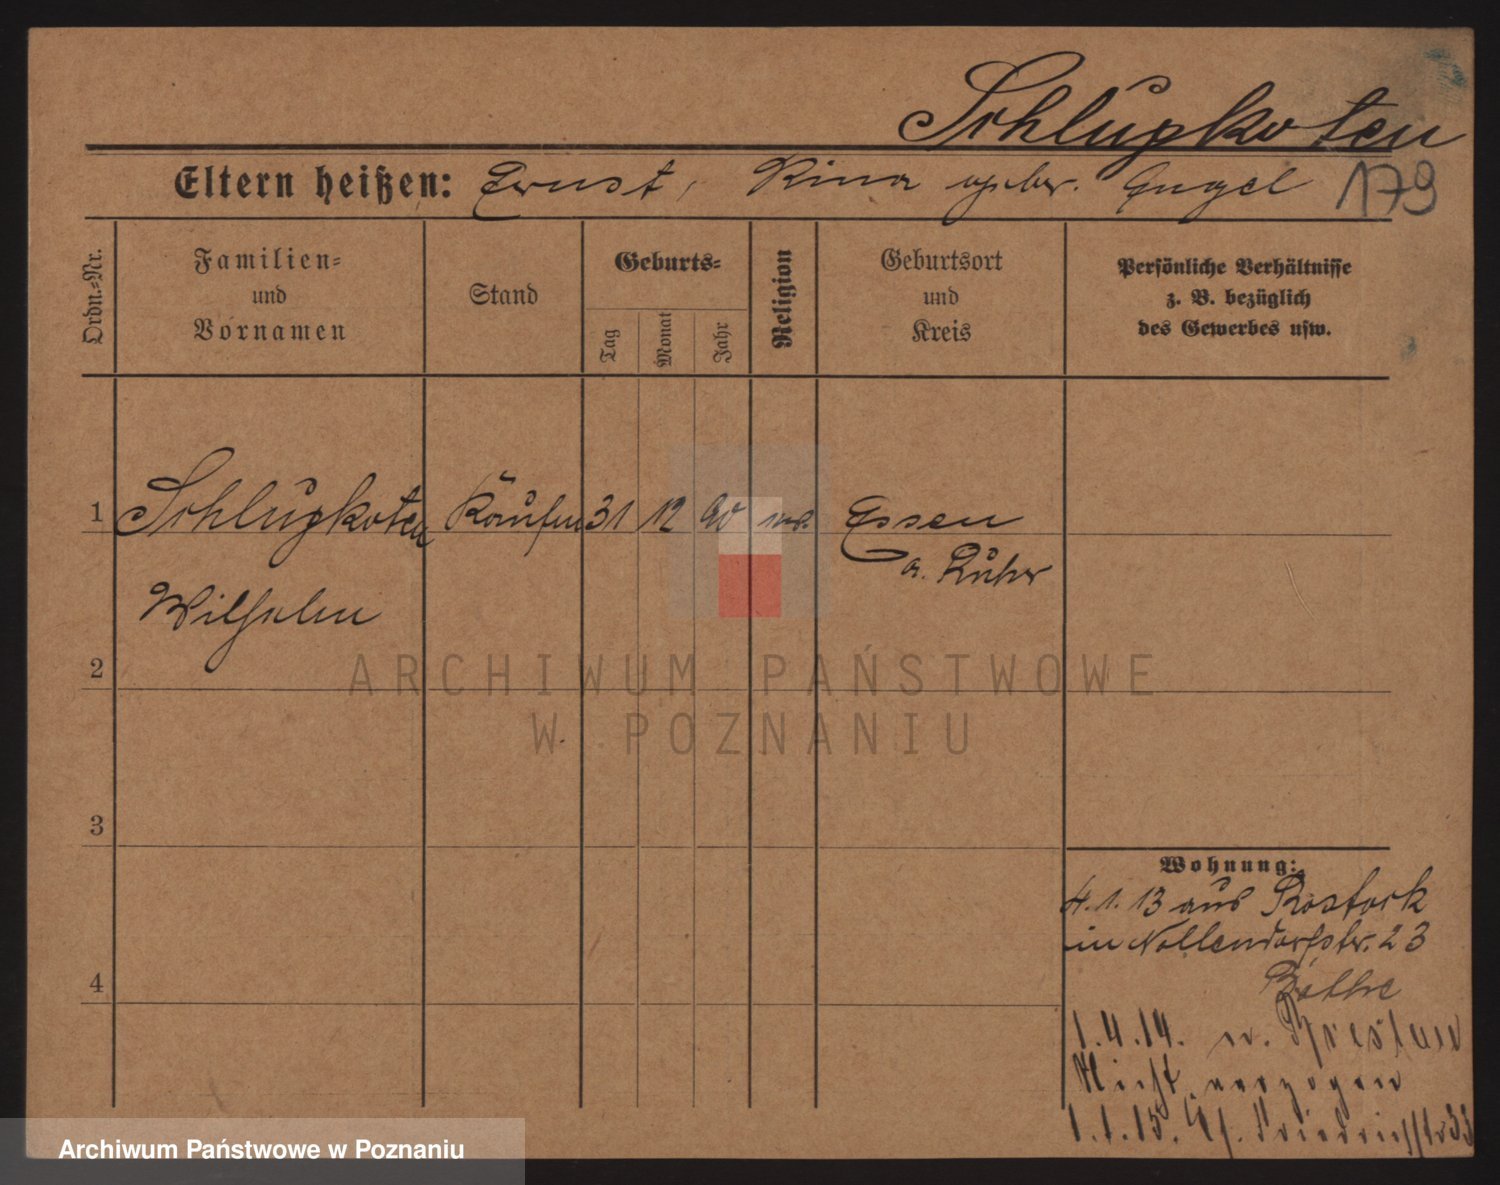 Schlupkoten
Eltern heißen: Ernst, Rina geber. Engel 179
Ordn.-Nr.
Familien-
und
Vornamen
Stand
Geburts-
Tag
Monat
Jahr
Religion
Geburtsort
und
Kreis
Persönliche Verhältnisse
z. B. bezüglich
des Gewerbes usw.
1 Schlupkoten Kaufm 31 12 90 Essen
a. Ruhr
Wilhelm
2
ARCHIWUM PAŃSTWOWE
W POZNANIU
3
4
Wohnung:
4. 1. 13 aus Rostock
in Nollendorfstr. 23
Bothe
1. 4. 14. n. Breslau
Nicht verzogen
1. 1. 15. Friedrichstr 33
Archiwum Państwowe w Poznaniu